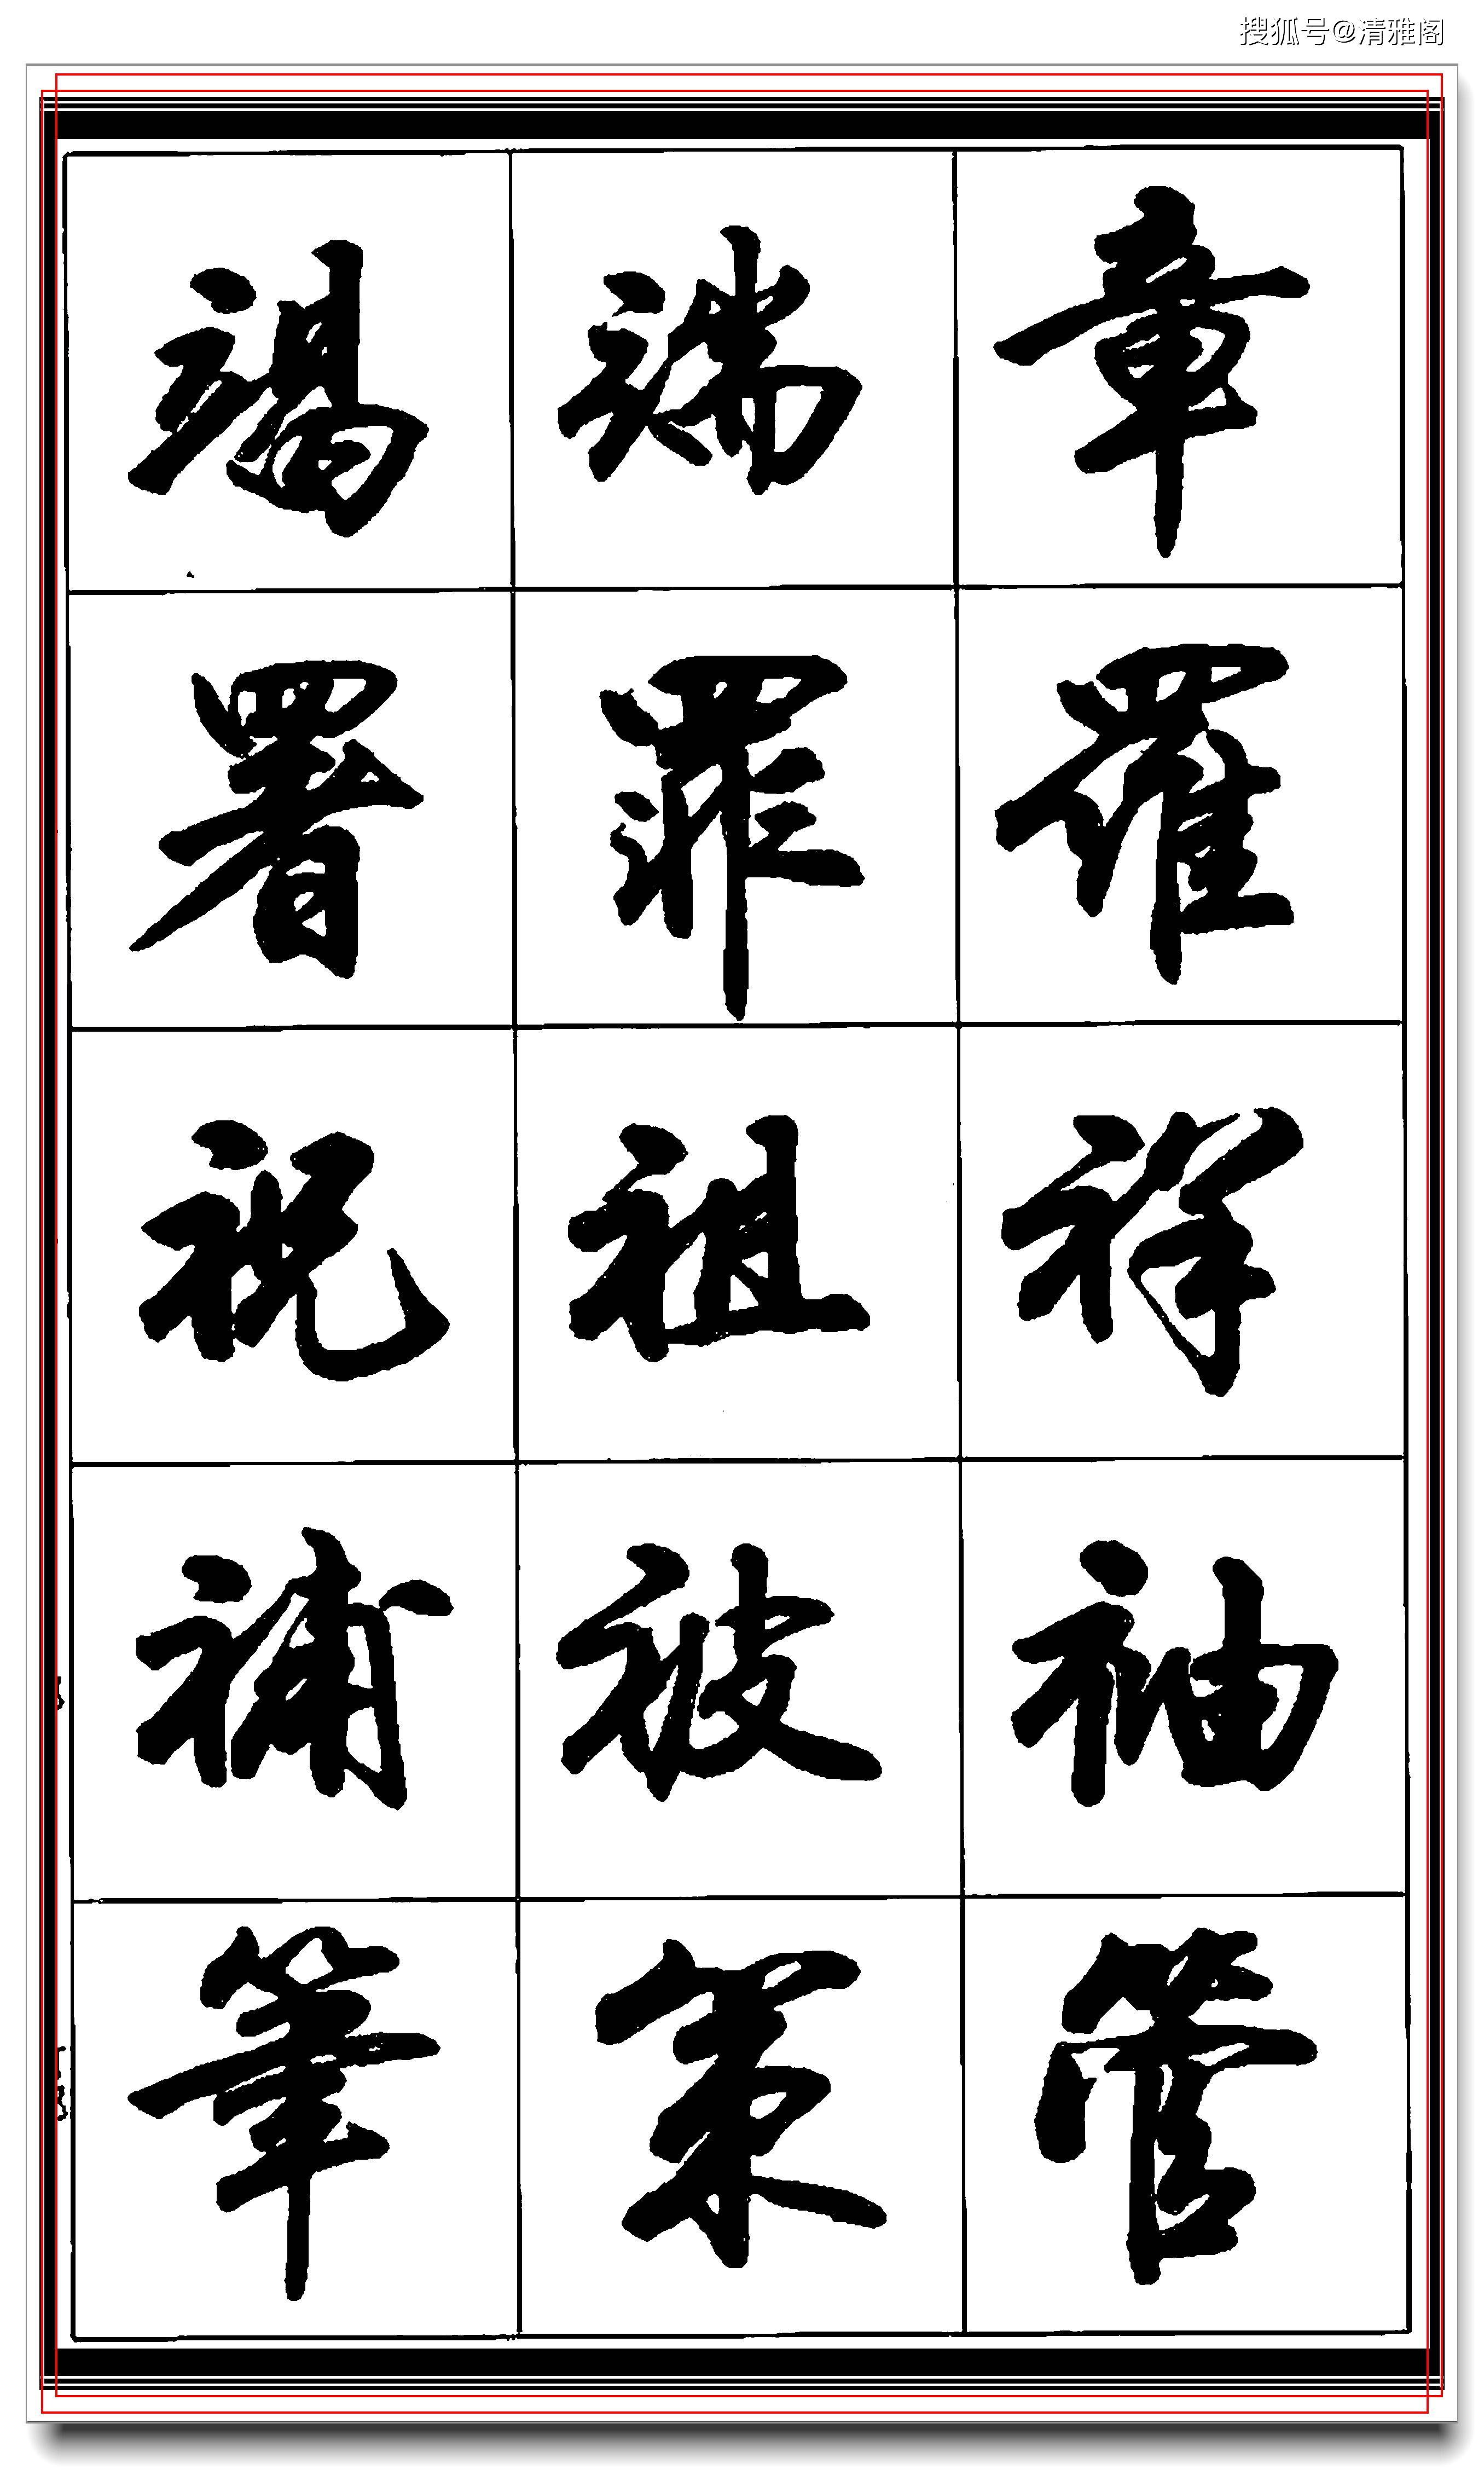 搜狐号@清雅阁
章端竭
羅罪署
祥祖祝
袖被補
管策筆